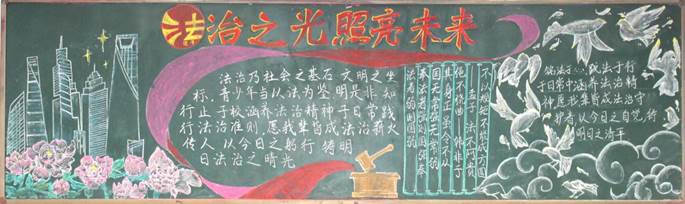 法治之光照亮未来
法治乃社会之基石 文明之坐
标,青少年当以法为鉴 明是非 知
行止 于校涵养法治精神 于日常践
行法治准则,愿我辈皆成法治薪火
传人 以今日之躬行 铸明
日法治之晴光
不以规矩 不能成方圆
孟子 法不阿贵
绳不挠曲 韩非子
其身正
国无常强无常弱
奉法者强则国强 奉
法者弱则国弱
于心 践法于行
于日常中涵养法治精
神 愿我辈皆成法治守
护者 以今日之自觉 铸
明日之清平